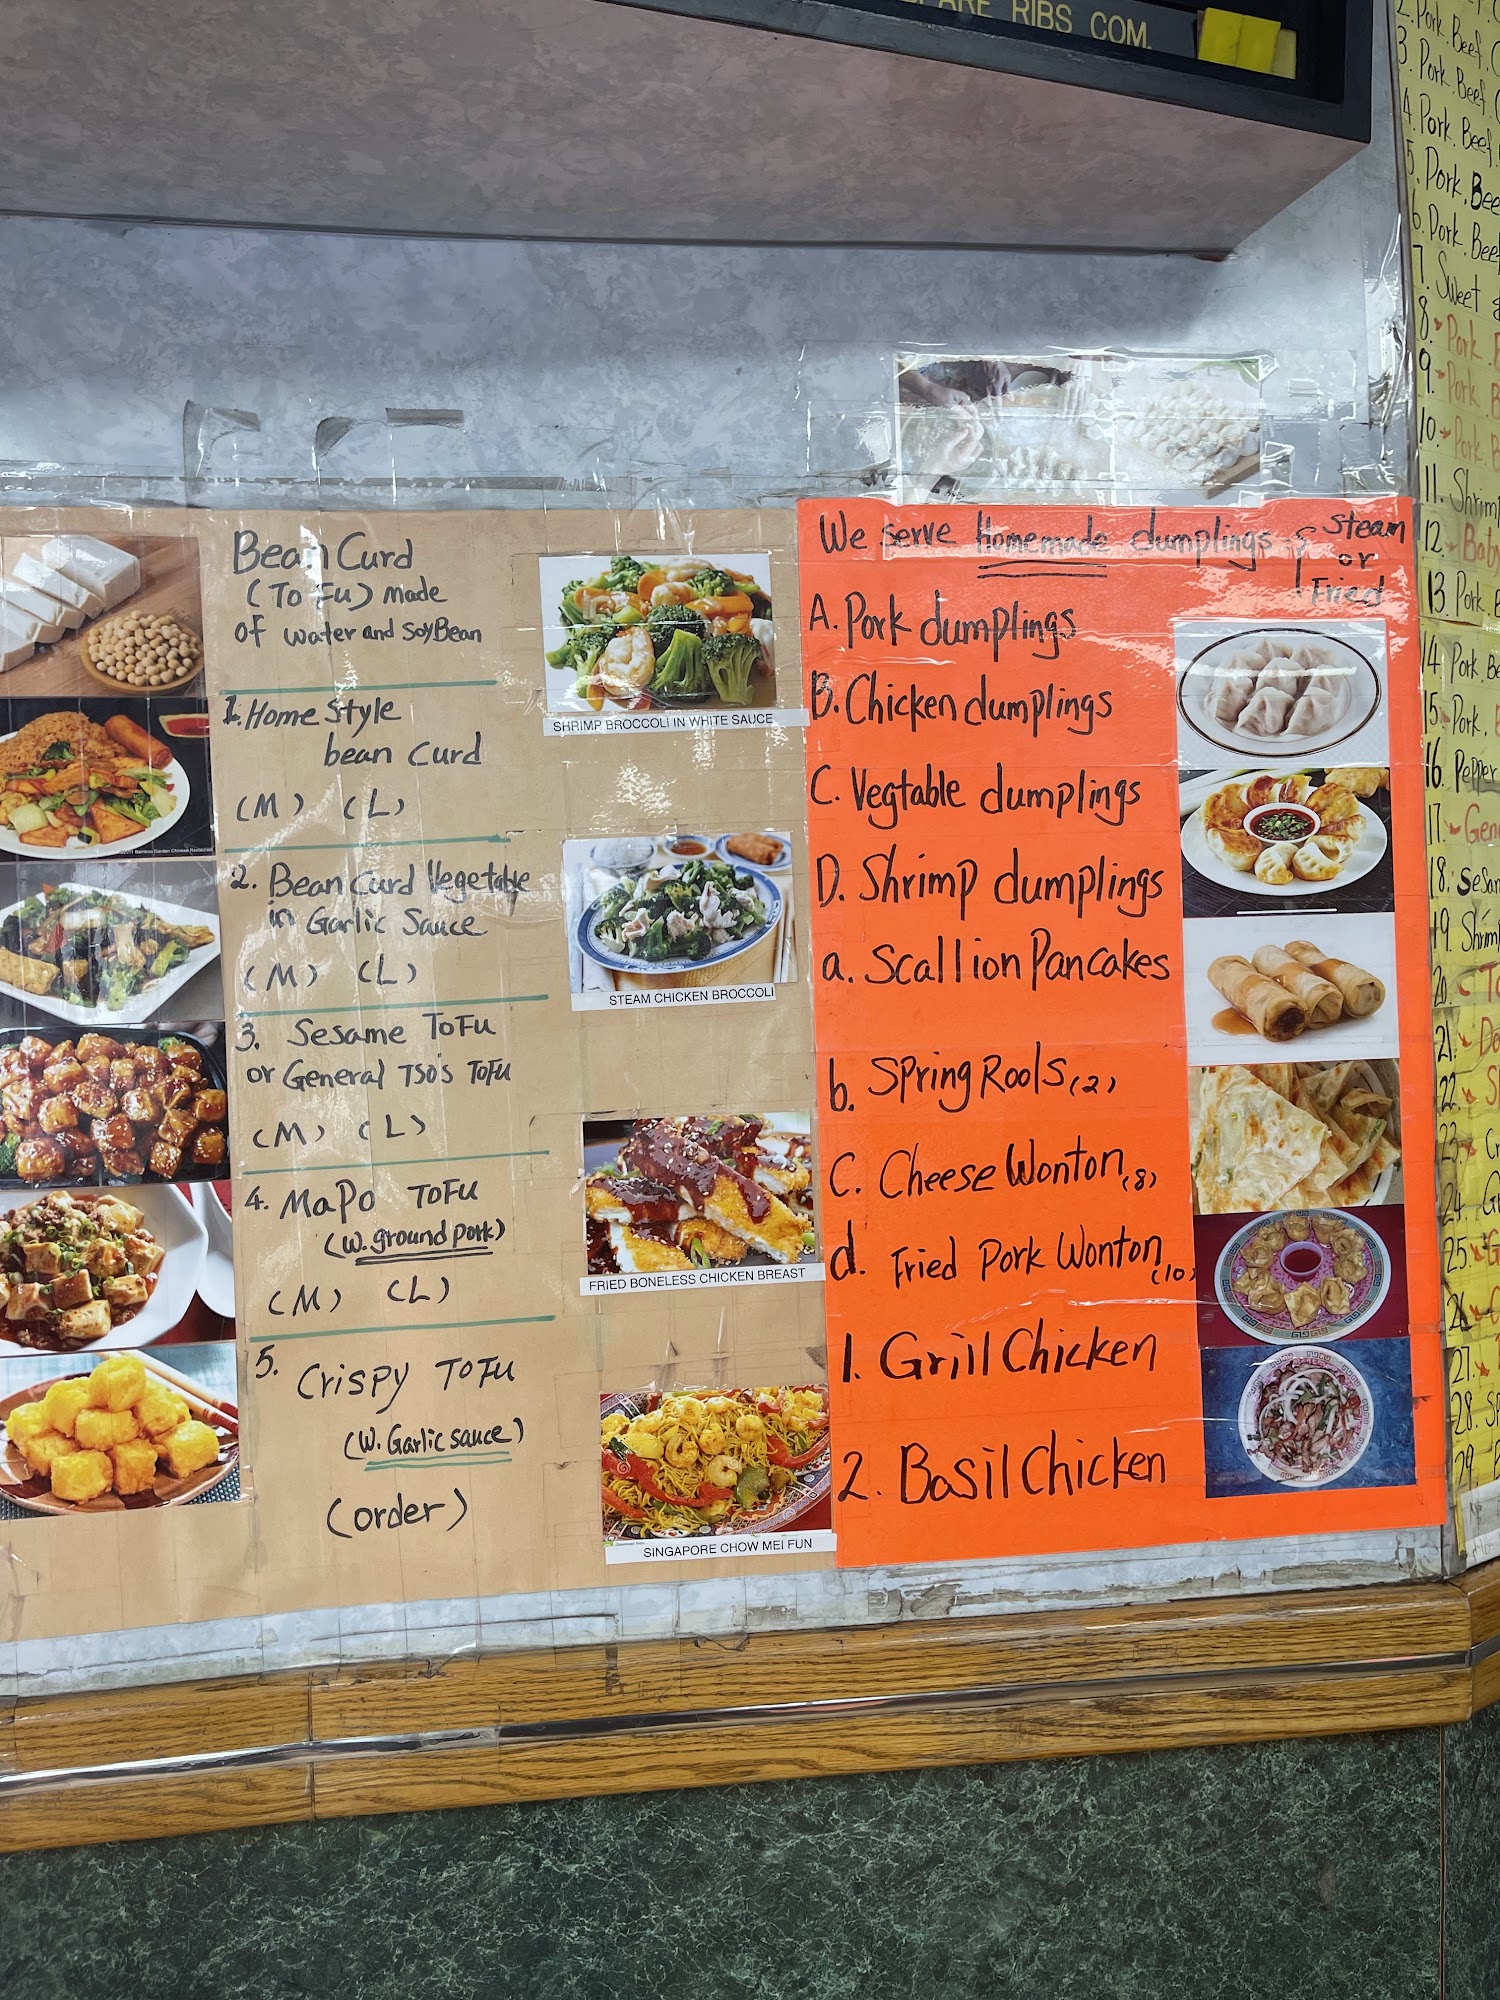 RIBS COM.
Bean Curd
(To Fu) made
of water and soyBean
1. Home Style
bean Curd
(M) (L)
2. Bean Curd Vegetable
in Garlic Sauce
(M) (L)
3. Sesame ToFu
or General TSO'S ToFu
(M) (L)
4. MaPo ToFu
(w. ground pork)
(M) (L)
5. Crispy ToFu
(w. Garlic sauce)
(order)
SHRIMP BROCCOLI IN WHITE SAUCE
STEAM CHICKEN BROCCOLI
FRIED BONELESS CHICKEN BREAST
SINGAPORE CHOW MEI FUN
We serve Homemade dumplings { Steam
or
Fried
A. Pork dumplings
B. Chicken dumplings
C. Vegtable dumplings
D. Shrimp dumplings
a. Scallion Pancakes
b. Spring Rools (2)
C. Cheese Wonton (8)
d. Fried Pork Wonton (10)
1. Grill Chicken
2. Basil Chicken
2. Pork. Beef.
3. Pork. Beef.
4. Pork. Beef.
5. Pork.
6. Pork. Beef
7. Sweet
8. Pork.
9. Pork.
10. Pork.
11. Shrimp
12.
13. Pork.
14. Pork.
15. Pork.
16. Pepper
17.
18.
19.
20.
21.
22.
23.
24.
25.
26.
27.
28.
29.